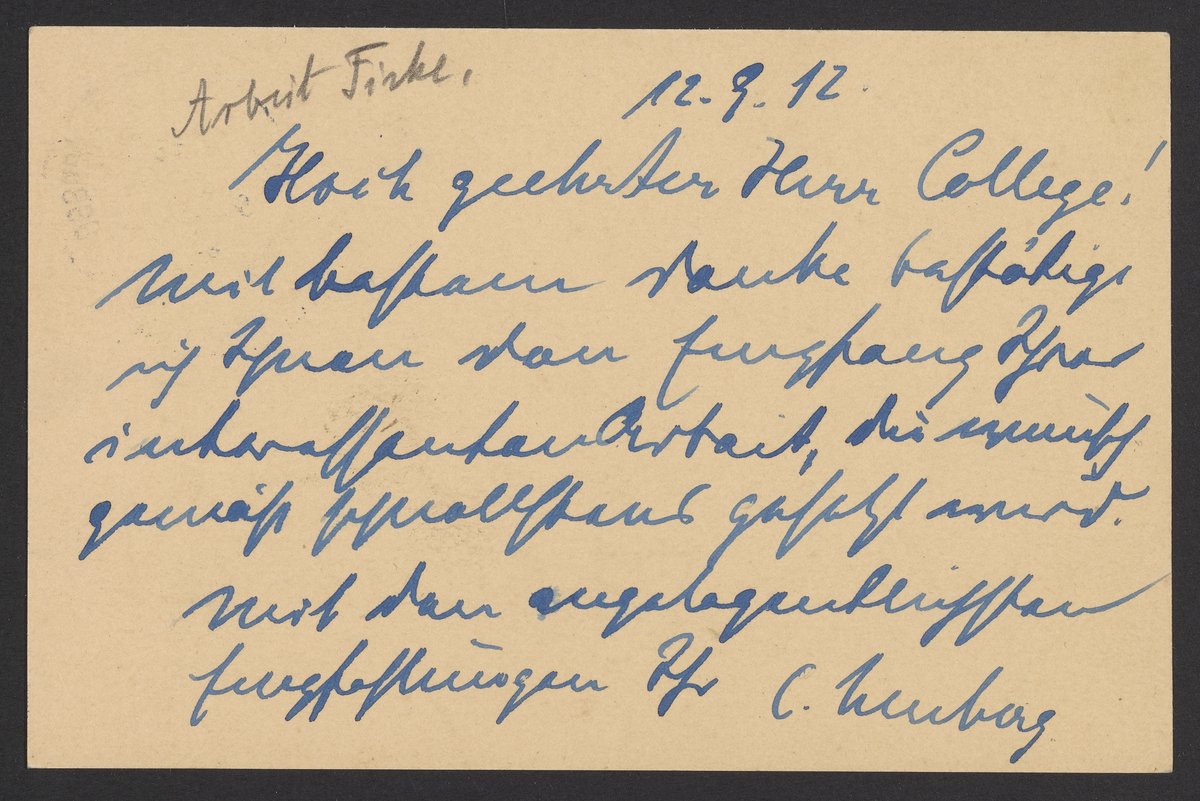 Arbeit Fiske.
12.9.12.
Hoch geehrter Herr College!
Mit bestem Danke bestätige
ich Ihnen den Empfang Ihrer
interessanten Arbeit, die wunsch
gemäß schnellstens gesetzt wird.
Mit den angelegentlichsten
Empfehlungen Ihr C. Neuberg